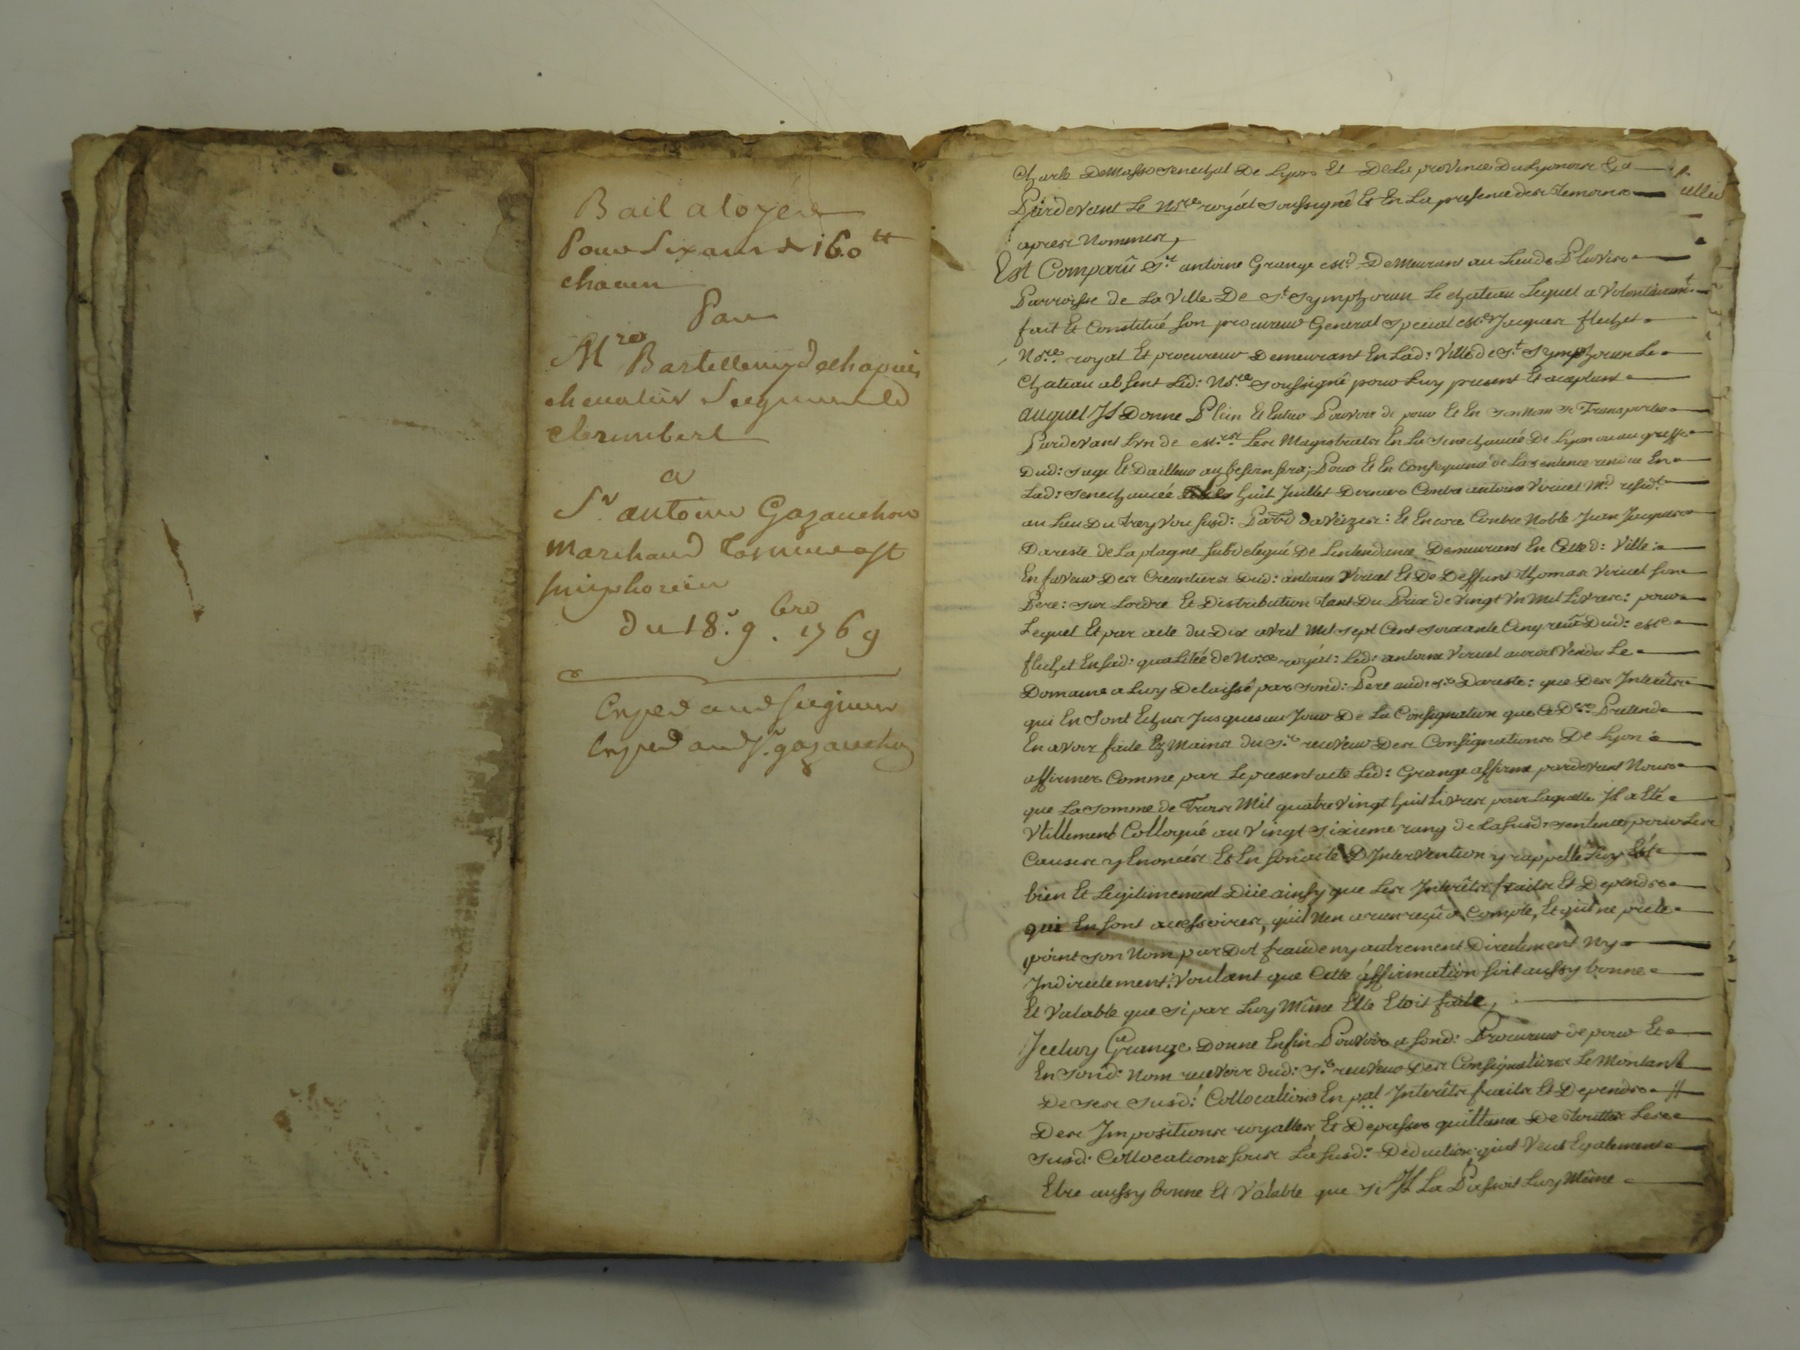 Bail a loyer
Pour Six ans & 160 tt
chacun
Par
Mre Bartellemy dechapuis
chevalier Seigneur de
clerimbert
a
Sr antoine Gazanchon
Marchand Tannier a st
simphorien
du 18e. 9bre. 1769
Exped aud Seigneur
Exped aud Sr gazanchon
Charle De Masso senechal De Lyon Et De La province Du Lyonois &a
Pardevant Le Nore royal soussigné Et En La presence des Temoins
apres Nommes,
Est Comparû Sr antoine Grange Demeurant au Lieu de Pluvis
Parroisse de La Ville De St Symphorien Le chateau Lequel a Volontairemt
fait Et Constitué son procureur General special Jacques flechet
Nore royal Et procureur Demeurant En Lad: Ville de St Symphorien Le
chateau absent Led: Nore soussigné pour Luy present Et aceptant
auquel Il Donne Plein Et Entier Pouvoir de pour Et En son Nom se Transporter
Pardevant Lvn de Les Magistrats En La Senechaucée De Lyon ou au greffe
Dud: siege Et Dailleur ou besoin sera; Pour Et En Consequence de La sentence rendue En
Lad: senechaucée huit Juillet Dernier Contre antoine Viricel Md residt
au Lieu Du susd: Et Encore Contre Noble Jean Jacques
Dareste de La plagne subdelegué De Lintendance Demeurant En Cette d: Ville:
En faveur Des Creantiers Dud: antoine Viricel Et De Deffunt Thomas Viricel son
Pere: sur Lordre Et Distribution tant Du Prix de Vingt Vn Mil Livres: pour
Lequel Et par acte du Dix avril Mil sept Cent soixante Cinq reçû Dud:
flechet En sad: qualitée de Nore royal: Led: antoine Viricel auroit Vendu Le
Domaine a Luy Delaissé par sond: Pere aud: Sr Dareste: que Des Interêts
qui En sont Echus Jusques au Jour De La Consignation que Ce Der Pretend
En avoir faite Ez Mains du Sr receveur Des Consignations De Lyon
affirmer Comme par Le present acte Led: Grange affirme pardevant Nous
que La somme de Trois Mil quatre Vingt huit Livres pour Laquelle Il a Eté
Vtillement Colloqué au Vingt sixieme rang de La susd: sentence pour Les
Causes y Enoncées Et En son acte D'Intervention y rappellé Luy Est
bien Et Legitimement Düe ainsy que Les Interêts fraits Et Depends
qui En sont accessoires, quil Nen a rien reçû a Compte, Et quil ne prete
point son Nom par Dol fraude ny autrement Directement Ny
Indirectement; Voulant que Cette affirmation soit aussy bonne
Et Valable que si par Luy Même Elle Etoit faite,
Jceluy Grange Donne Enfin Pouvoir a sond: Procureur de pour Et
En sond: Nom recevoir dud: Sr receveur Des Consignations Le Montant
De ses susd: Collocations En pal Interêts fraits Et Depends
Des Impositions royalles Et De passer quittance De toutes Les
susd: Collocations sous La susd: Deduction quil Veut Egalement
Etre aussy bonne Et Valable que si Il La Passoit Luy Même